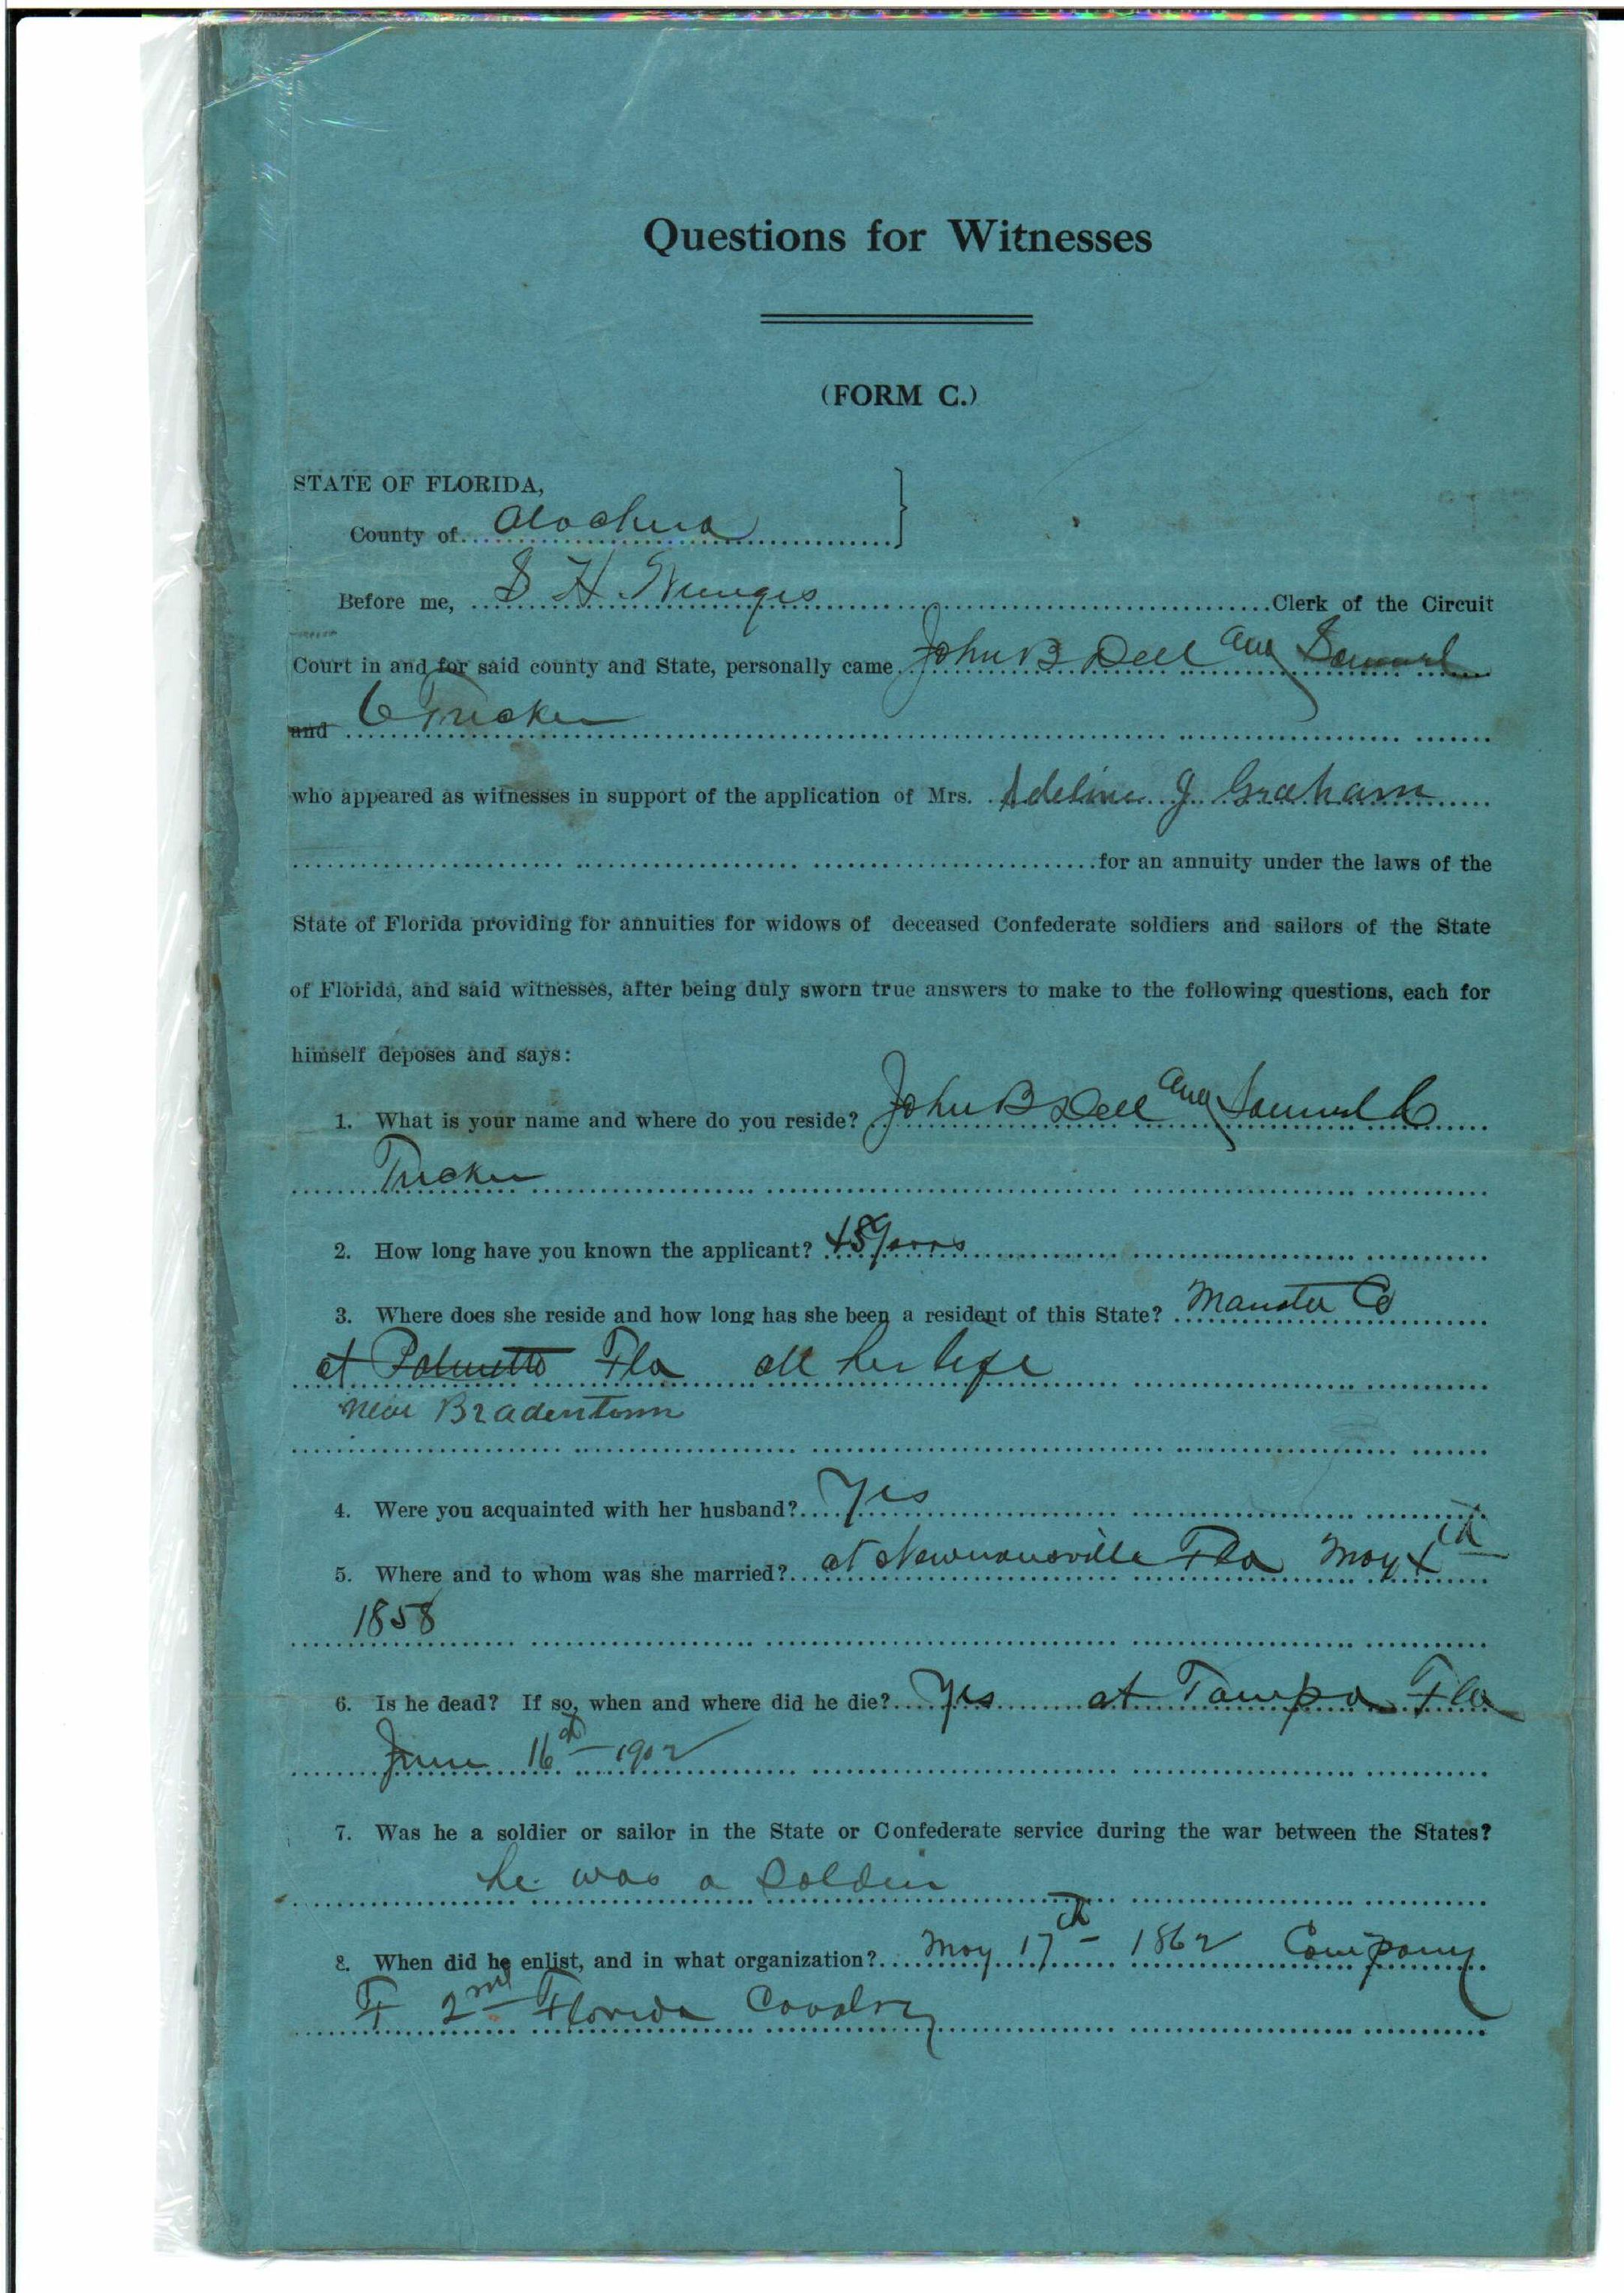 Questions for Witnesses
(FORM C.)
STATE OF FLORIDA,
County of Alachua
Before me, S H Wienges Clerk of the Circuit
Court in and for said county and State, personally came John B Dell and Samuel
and C Tucker
who appeared as witnesses in support of the application of Mrs. Adeline J Graham
for an annuity under the laws of the
State of Florida providing for annuities for widows of deceased Confederate soldiers and sailors of the State
of Florida, and said witnesses, after being duly sworn true answers to make to the following questions, each for
himself deposes and says:
1. What is your name and where do you reside? John B Dell and Samuel C
Tucker
2. How long have you known the applicant? 48 years
3. Where does she reside and how long has she been a resident of this State? Manatee Co
at Palmetto Fla all her life
near Bradentown
4. Were you acquainted with her husband? Yes
5. Where and to whom was she married? at Newnansville Fla May
1858
6. Is he dead? If so, when and where did he die? Yes at Tampa Fla
June 16th 1902
7. Was he a soldier or sailor in the State or Confederate service during the war between the States?
he was a Soldier
8. When did he enlist, and in what organization? May 17th - 1862 Company
F 2nd Florida Cavalry